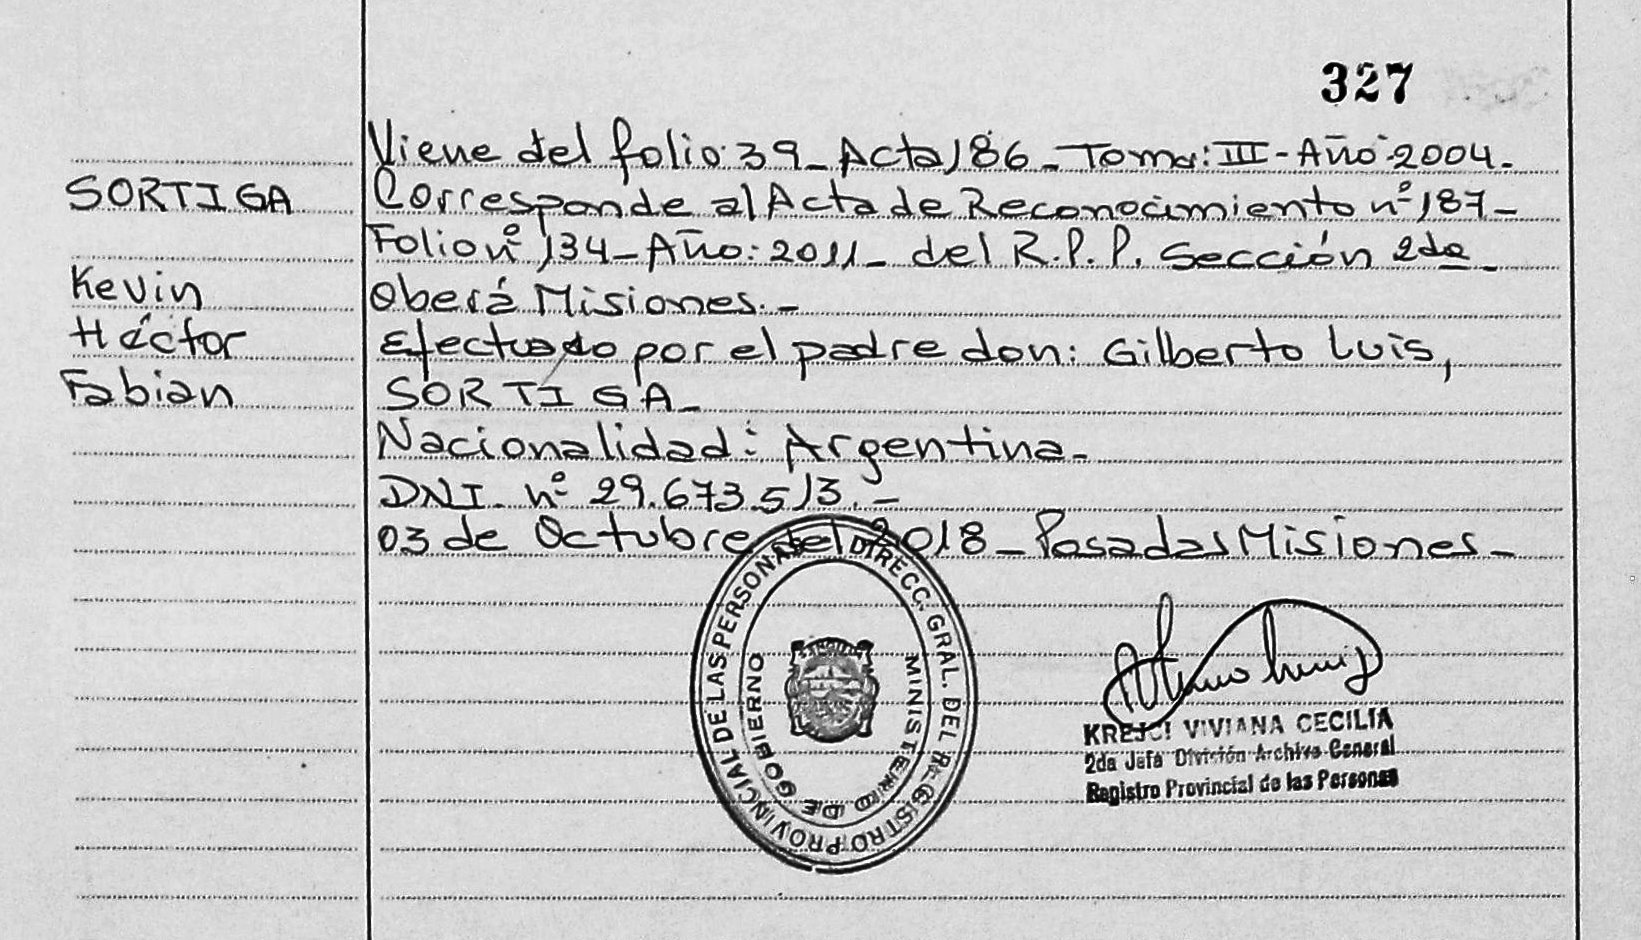 327
Viene del folio: 39 - Acta 186 - Tomo: III - Año 2004.
SORTIGA
Corresponde al Acta de Reconocimiento nº 187 -
Folio nº 134 - Año: 2011 - del R.P.P. Sección 2da -
Kevin
Oberá Misiones. -
Héctor
Efectuado por el padre don: Gilberto Luis,
Fabian
SORTIGA -
Nacionalidad: Argentina -
DNI. nº 29.673.513. -
03 de Octubre del 2018 - Posadas Misiones -
DIRECC. GRAL. DEL REGISTRO PROVINCIAL DE LAS PERSONAS
MINISTERIO DE GOBIERNO
KREJCI VIVIANA CECILIA
2da Jefa División Archivo General
Registro Provincial de las Personas